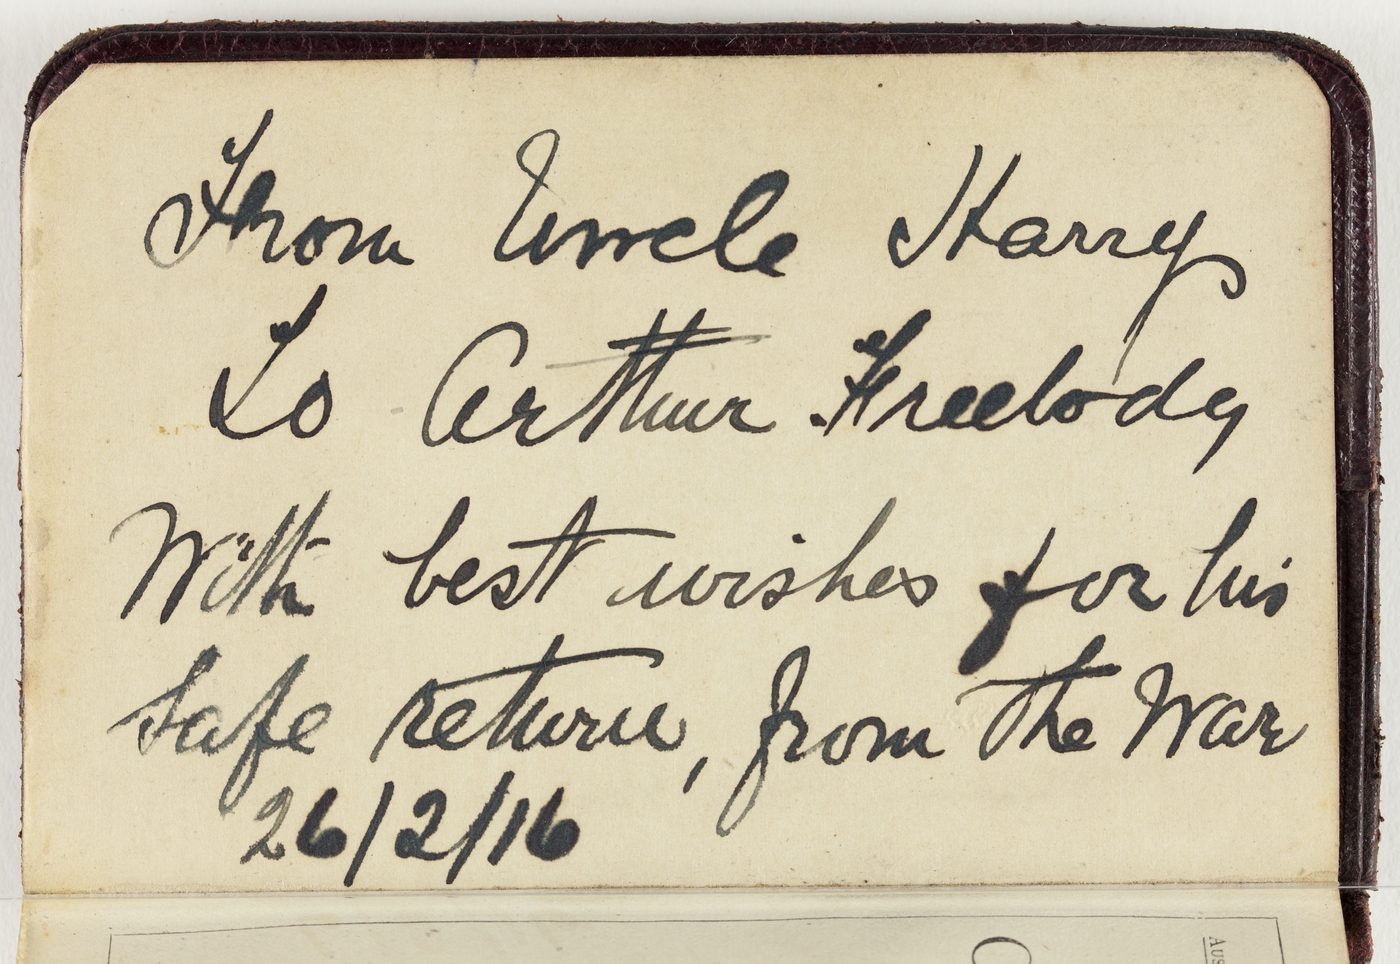 From Uncle Harry
To Arthur Freebody
With best wishes for his
safe return, from the War
26/2/16